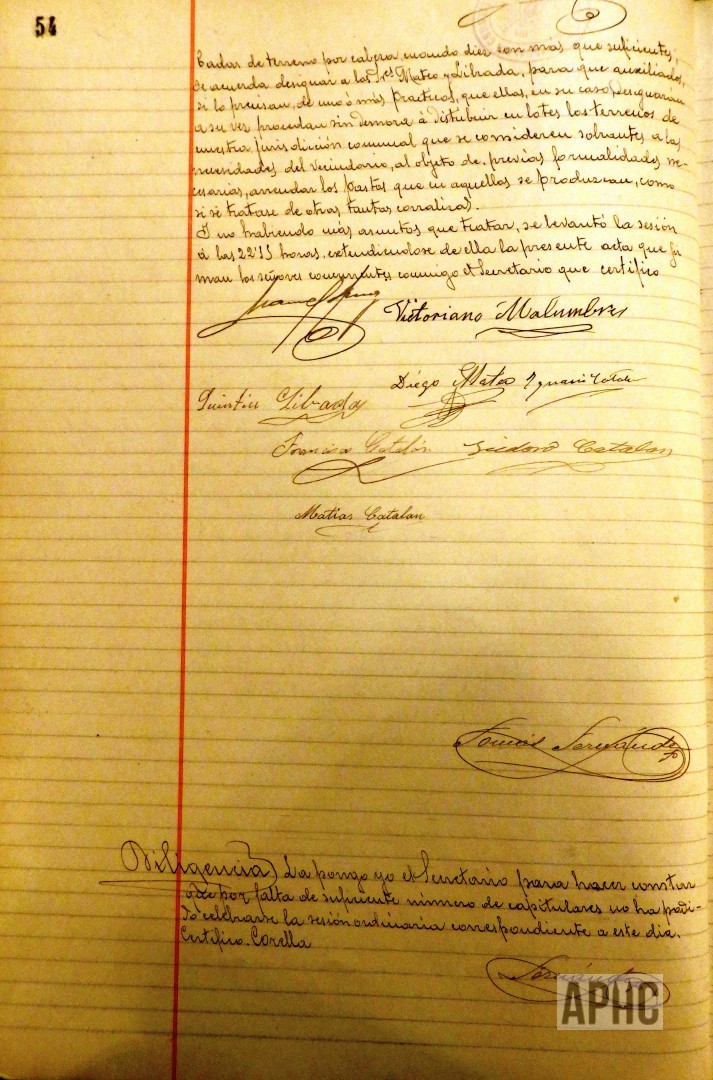 54
tadas de terreno por cabeza, cuando diez son más que suficientes,
se acuerda designar a los Sres Mateo y Librada, para que auxiliados,
si lo precisan, de uno ó más practicos, que ellos, en su caso, designarán
a su vez procedan sin demora á distribuir en lotes los terrenos de
nuestra jurisdicción comunal que se consideren sobrantes a las
necesidades del vecindario, al objeto de, previas formalidades ne-
cesarias, arrendar los pastos que en aquellos se produzcan, como
si se tratase de otras tantas corralizas.
Y no habiendo más asuntos que tratar, se levantó la sesión
á las 22'15 horas, extendiendose de ella la presente acta que fir
man los señores concurrentes conmigo el Secretario que certifico
Victoriano Malumbres
Diego Mateo
Quintin Librada
Francisco Catalán Isidoro Catalan
Matias Catalan
Tomás Fernández
Diligencia) La pongo yo el Secretario para hacer constar
que por falta de suficiente número de capitulares no ha podi-
do celebrarse la sesión ordinaria correspondiente a este dia.
Certifico. Corella
Fernández
APHC